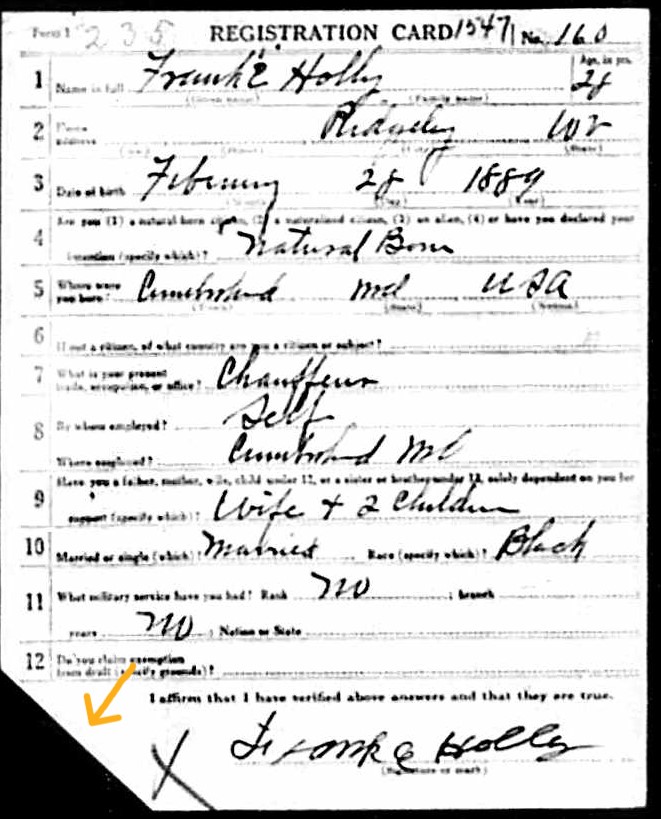 Form 1 235 REGISTRATION CARD 1547 No. 160
1 Name in full Frank E Holly Age, in yrs. 28
(Given name) (Family name)
2 Home address Ridgeley W V
(State)
3 Date of birth February 28 1889
(Month) (Day) (Year)
4 Are you (1) a natural-born citizen, (2) a naturalized citizen, (3) an alien, (4) or have you declared your
intention (specify which)? Natural Born
5 Where were you born? Cumberland Md USA
(Town) (State) (Nation)
6 If not a citizen, of what country are you a citizen or subject?
7 What is your present trade, occupation, or office? Chauffeur
8 By whom employed? Self
Where employed? Cumberland Md
9 Have you a father, mother, wife, child under 12, or a sister or brother under 12, solely dependent on you for
support (specify which)? Wife + 2 Children
10 Married or single (which)? Married Race (specify which)? Black
11 What military service have you had? Rank No ; branch
years No ; Nation or State
12 Do you claim exemption from draft (specify grounds)?
I affirm that I have verified above answers and that they are true.
X Frank E Holley
(Signature or mark)